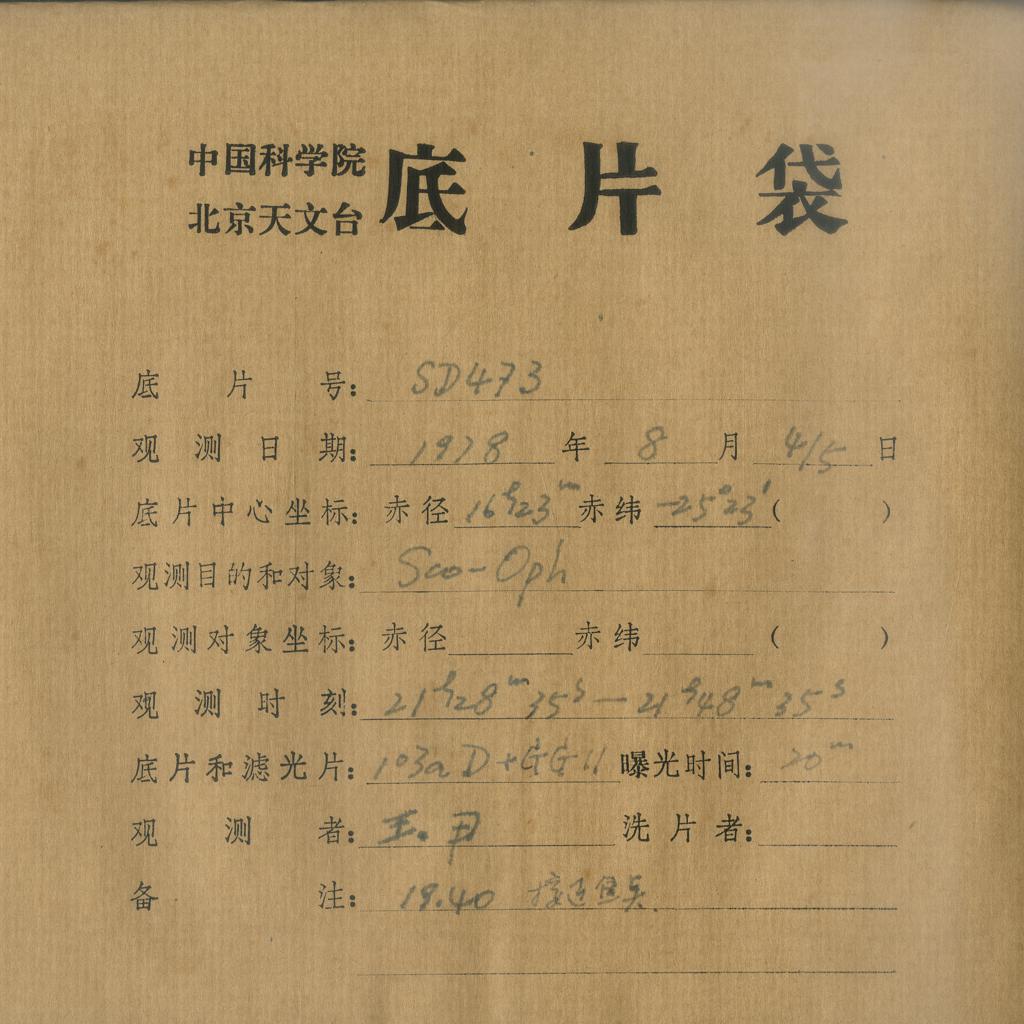 中国科学院
北京天文台
底片袋
底片号：SD473
观测日期：1978年8月4/5日
底片中心坐标：赤径16h23m赤纬-25°23′(　)
观测目的和对象：Sco-Oph
观测对象坐标：赤径　赤纬　(　)
观测时刻：21h28m35s—21h48m35s
底片和滤光片：103aD+GG11 曝光时间：20m
观测者：王. 洗片者：
备注：19.40 接近焦点.